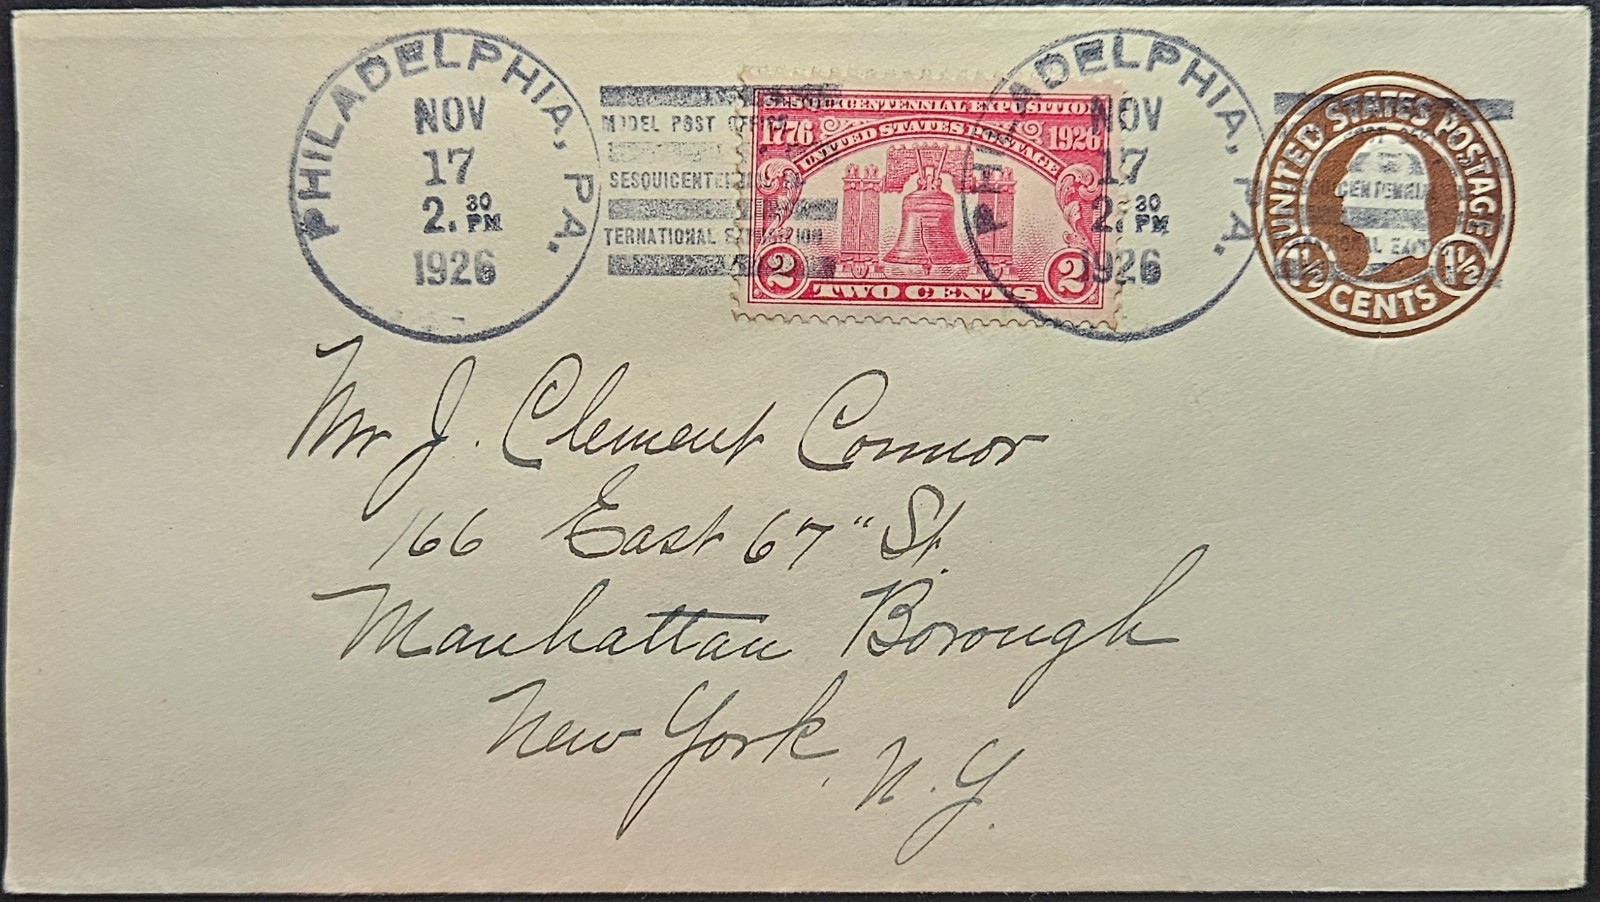 PHILADELPHIA, PA.
NOV
17
2.30 PM
1926
MODEL POST OFFICE
SESQUICENTENNIAL
TERNATIONAL EXPOSITION
SESQUICENTENNIAL EXPOSITION
1776 UNITED STATES POSTAGE 1926
2 TWO CENTS 2
PHILADELPHIA, PA.
NOV
17
2.30 PM
1926
UNITED STATES POSTAGE
1½ CENTS 1½
Mr J. Clement Connor
166 East 67" St.
Manhattan Borough
New York, N.Y.